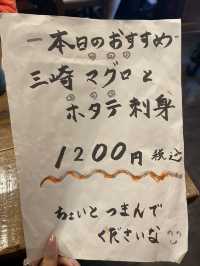 ー本日のおすすめー
三崎マグロと
ホタテ刺身
1200円税込
ちょいとつまんで
くださいな